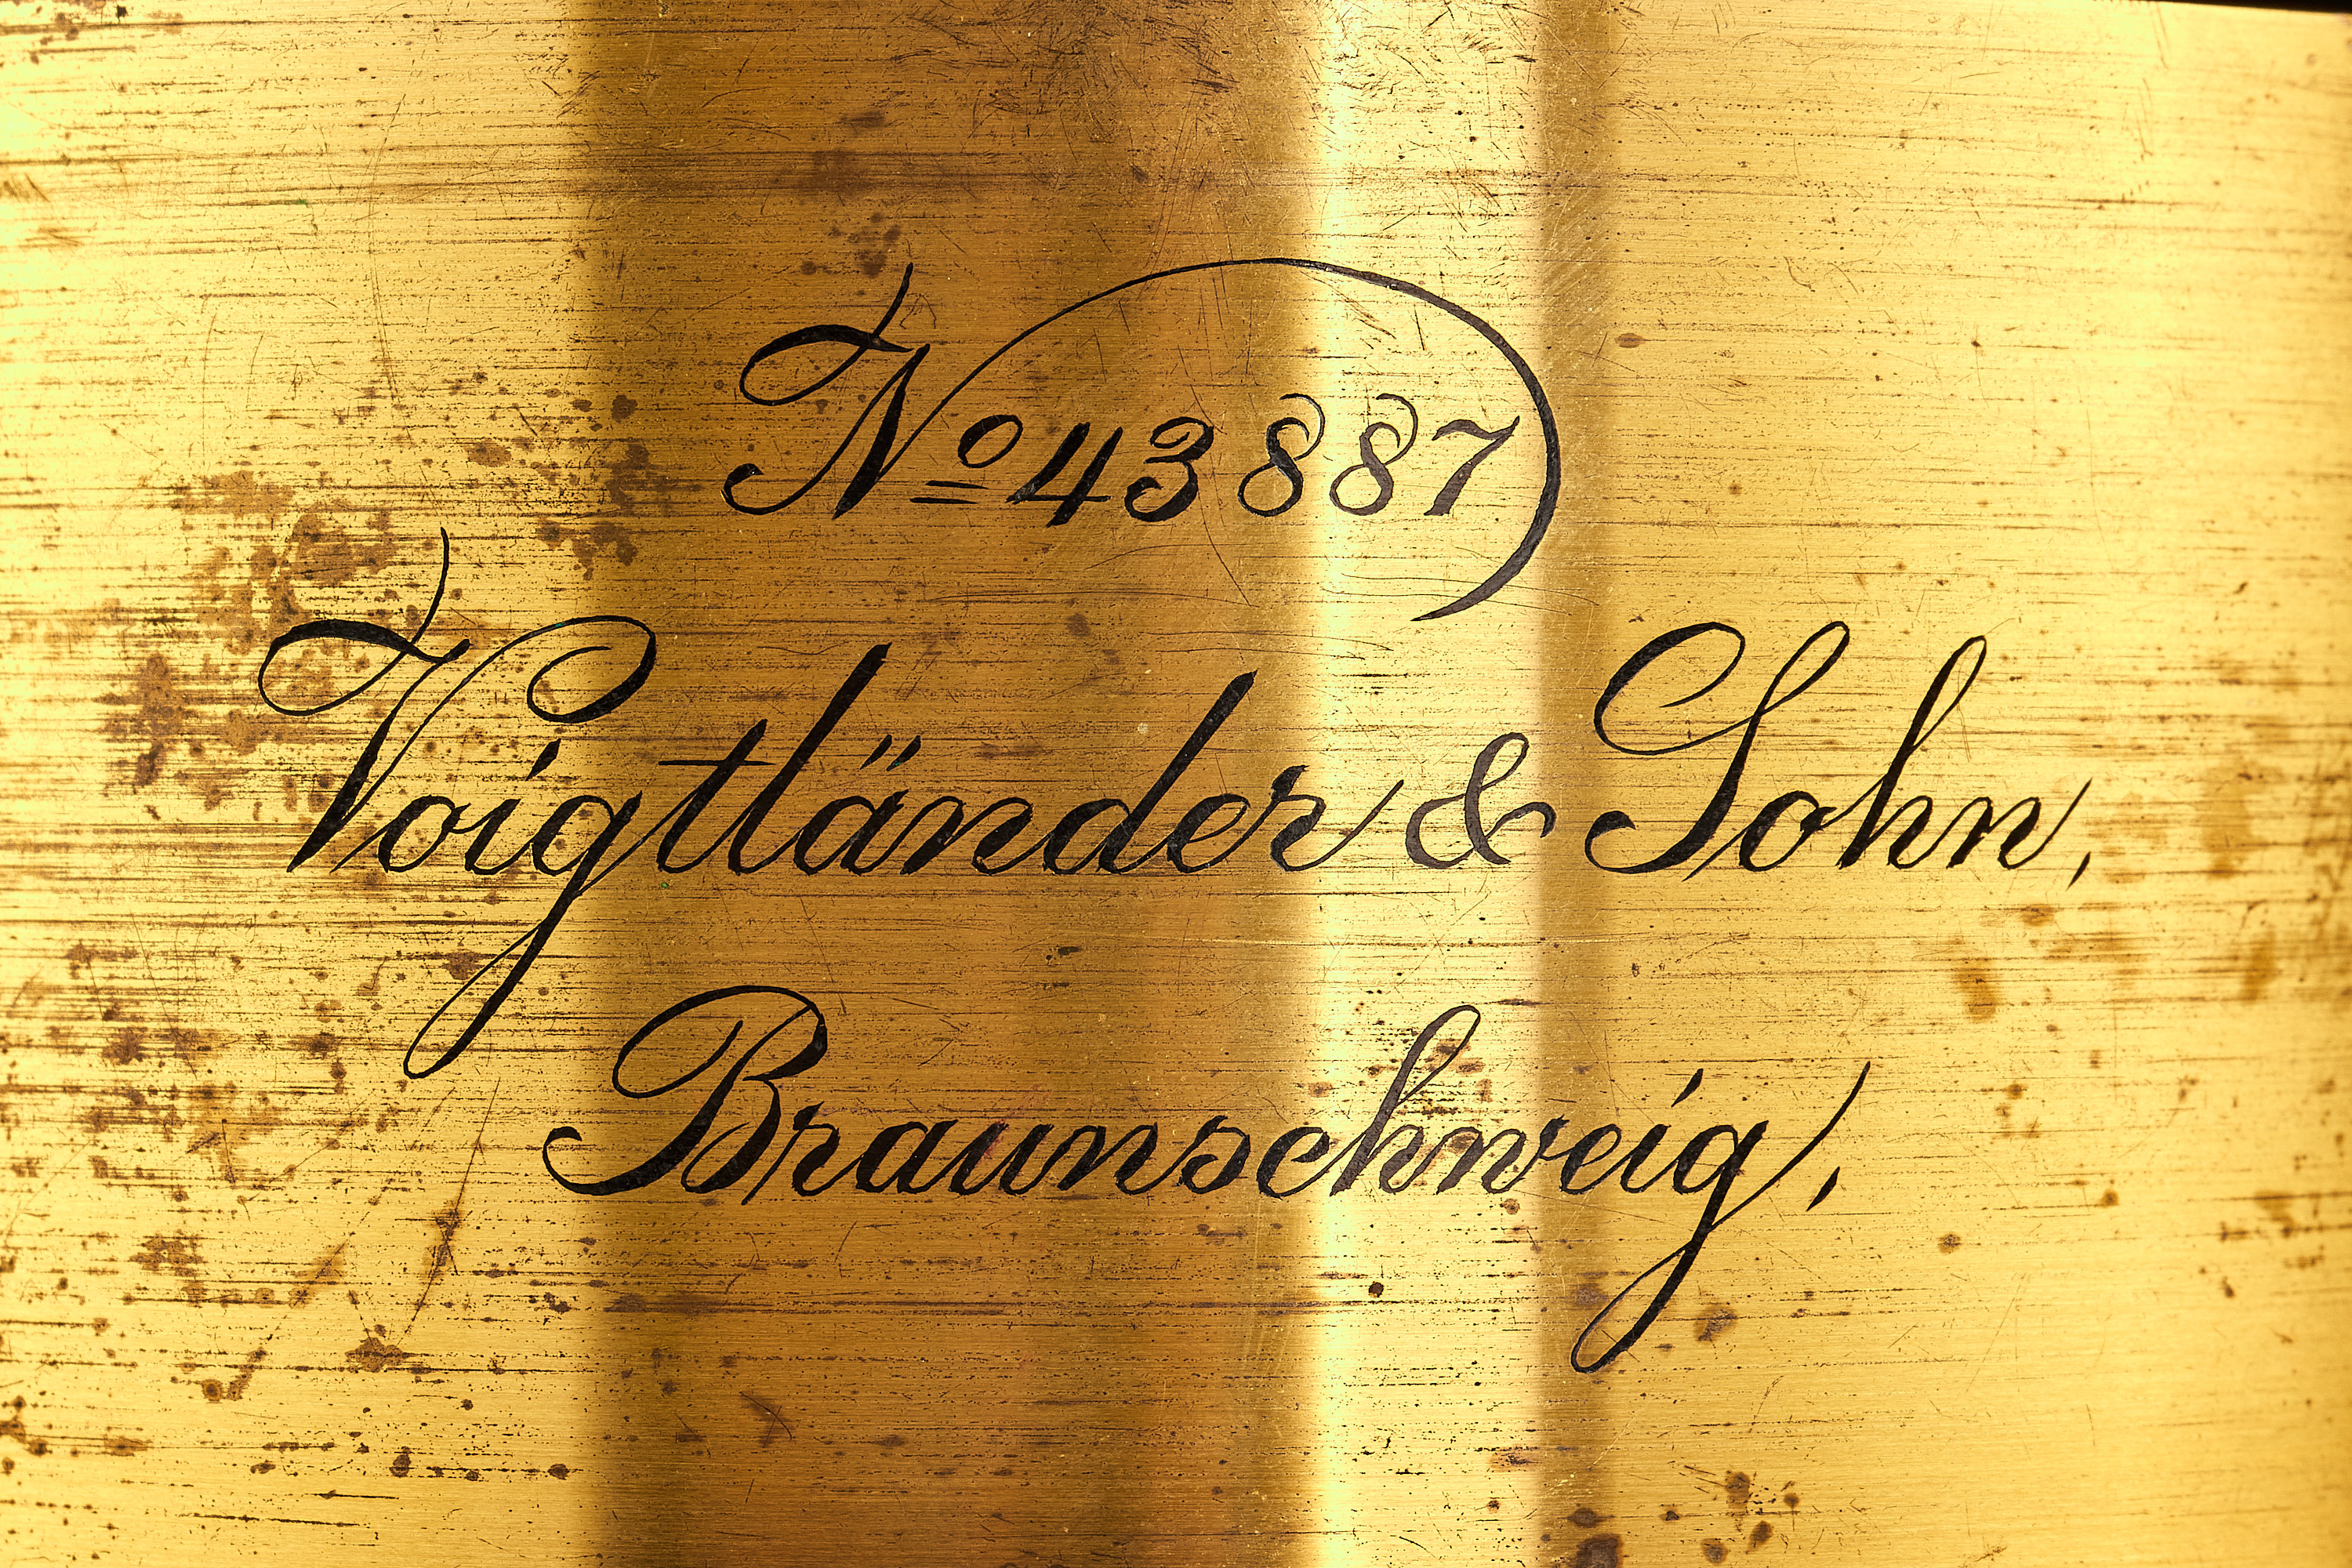 No 43887
Voigtländer & Sohn,
Braunschweig,